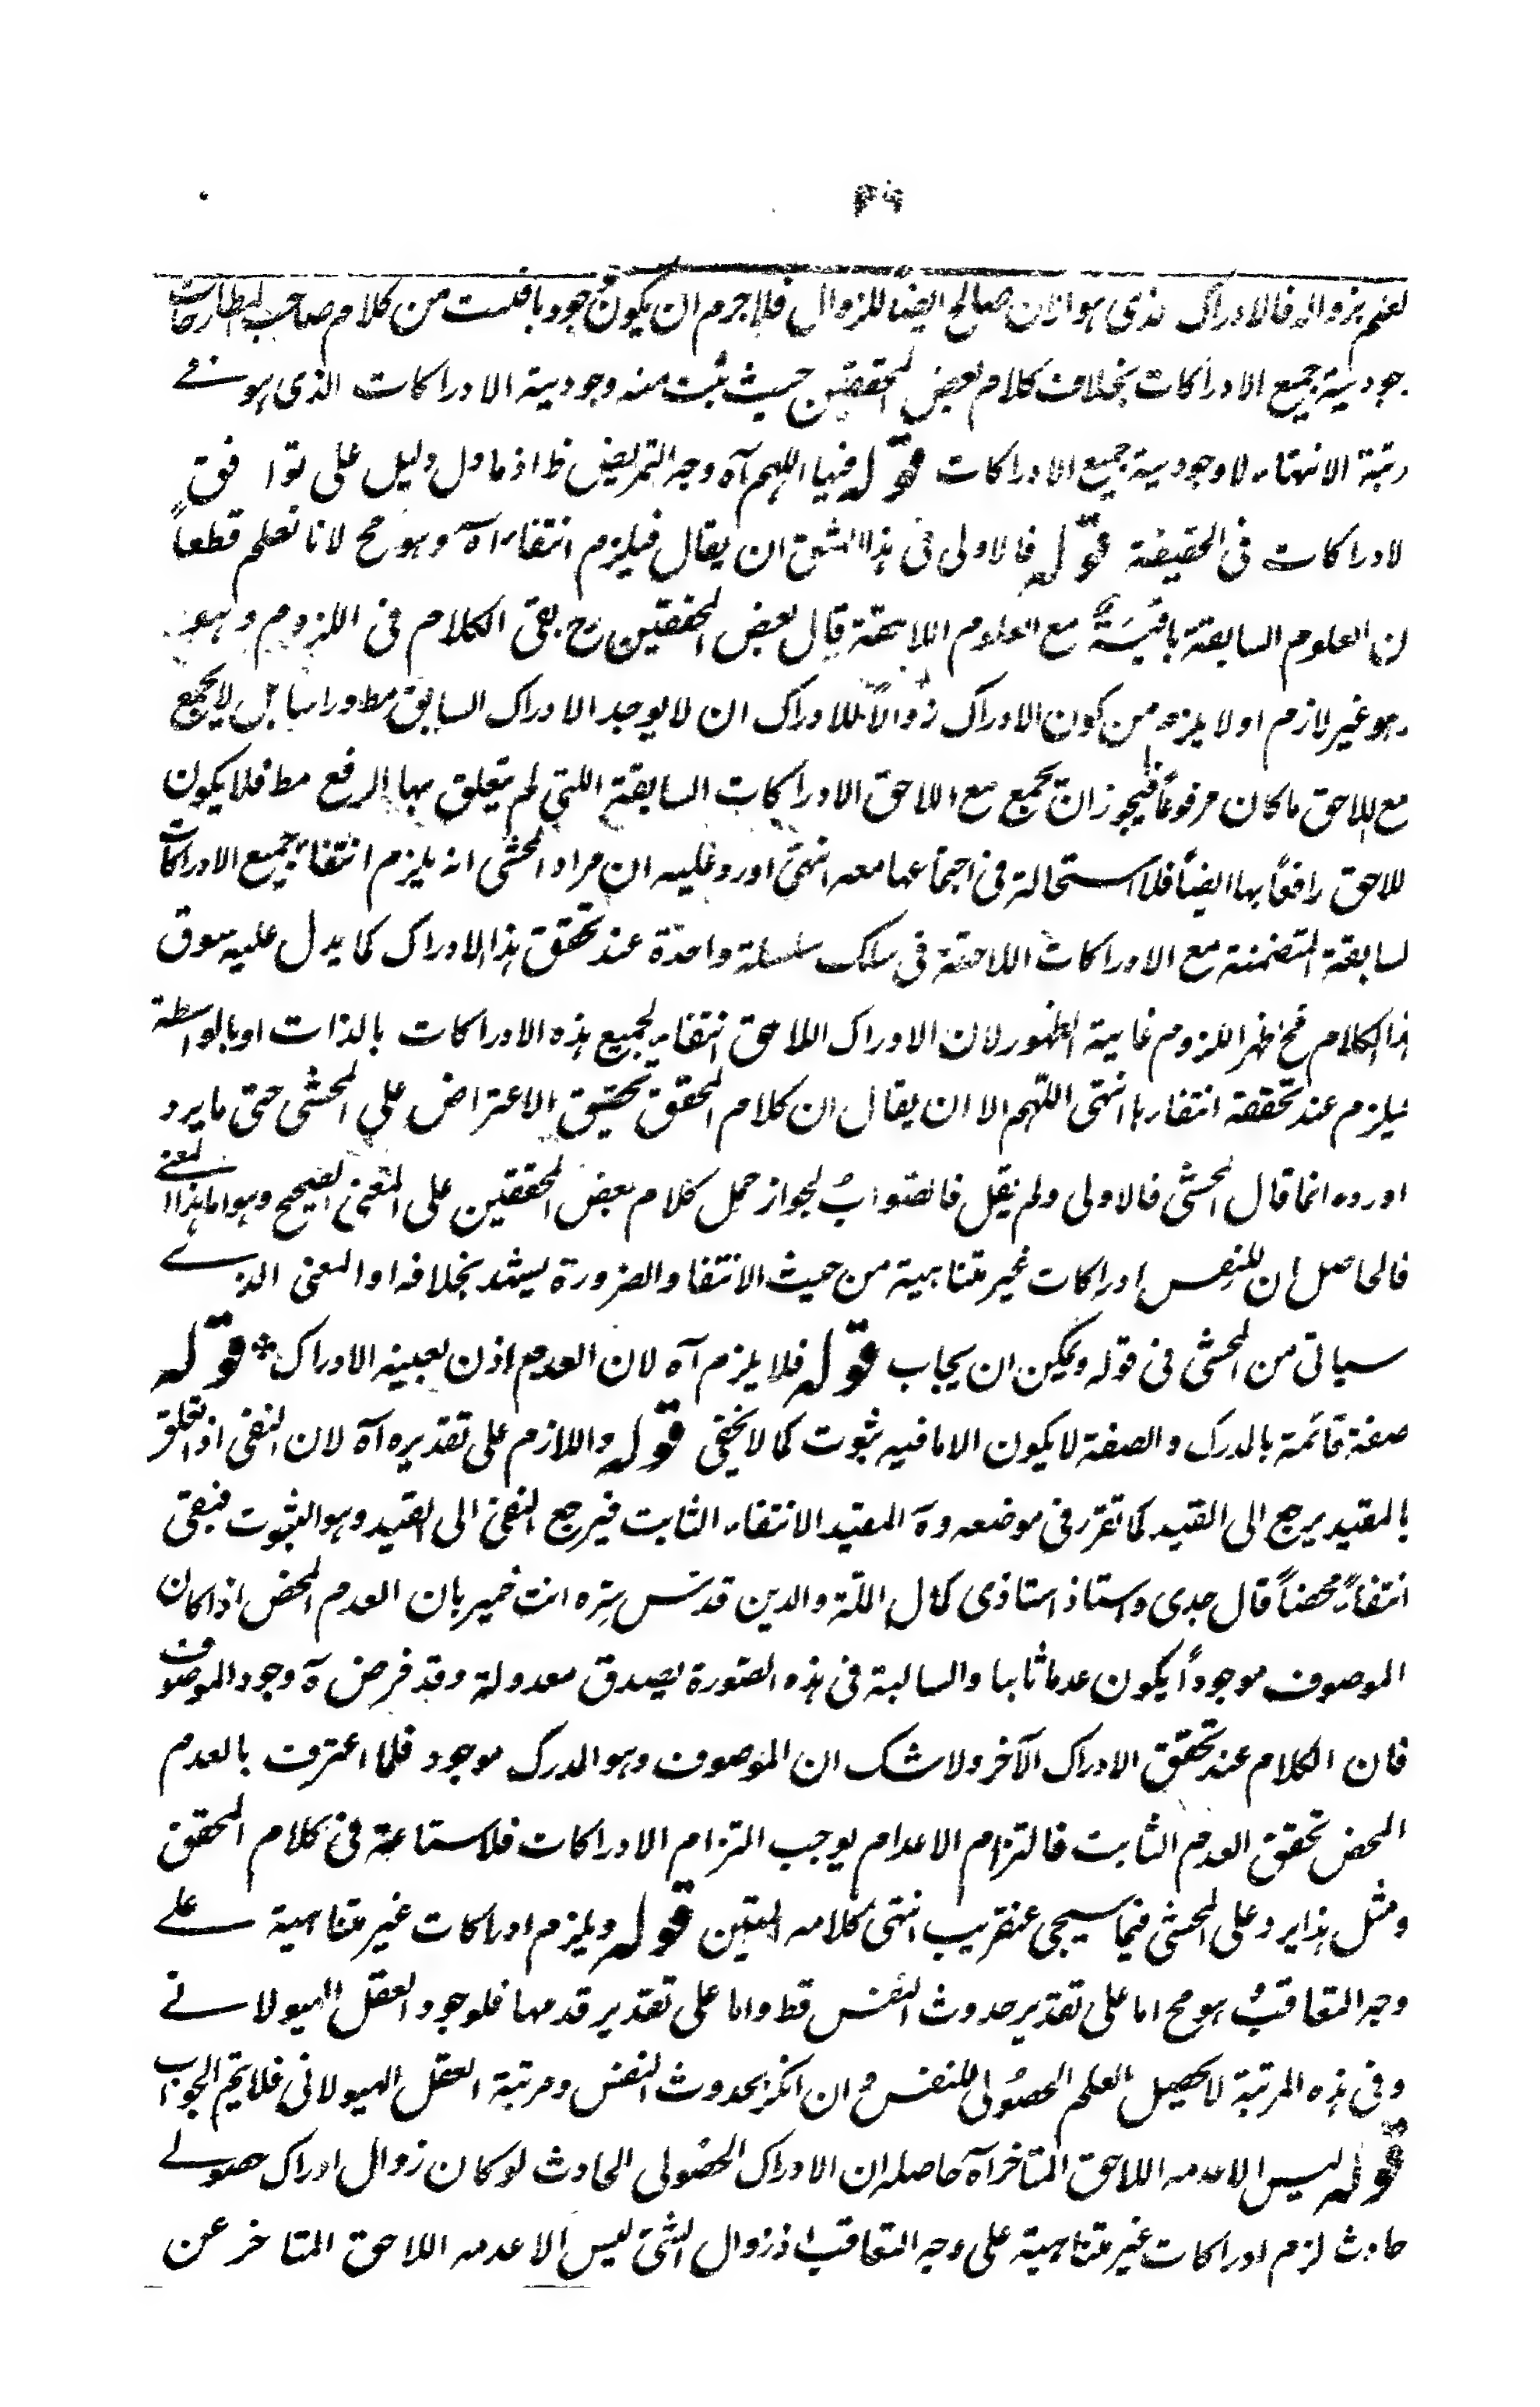 ۴۹
بزواله فالادراك الذى هو الان صالح ايضا للزوال فلا جرم ان يكون وجوديا فثبت من كلام صاحب المطارحات
جودية جميع الادراكات بخلاف كلام بعض المحققين حيث يثبت منه وجودية الادراكات الذى هو فے
رتبة الانتهاء لا وجودية جميع الادراكات قوله فيها اللهم آه وجه التمريض ظ اذ ما دل دليل على توافق
لادراكات فى الحقيقة قوله فالاولى فى هذا الشق ان يقال فيلزم انتفاء آه وهو مح لانا نعلم قطعاً
ن العلوم السابقة باقيةً مع العلوم اللاحقة قال بعض المحققين رح بقى الكلام فى اللزوم وهو
هو غير لازم اولا يلزم من كون الادراك زوالاً للادراك ان لا يوجد الادراك السابق مط وراسا بل لا يجمع
مع اللاحق ما كان مرفوعاً فيجوز ان يجمع مع اللاحق الادراكات السابقة اللتى لم يتعلق بها الرفع مط فلا يكون
للاحق رافعاً بها ايضاً فلا استحالة فى اجتماعها معه انتهى اورد عليه ان مراد المحشى انه يلزم انتفاء جميع الادراكات
لسابقة المتضمنة مع الادراكات اللاحقة فى سلك سلسلة واحدة عند تحقق هذا الادراك كما يدل عليه سوق
هذا الكلام فح اظهر اللزوم غاية الظهور لان الادراك اللاحق انتفاء لجميع هذه الادراكات بالذات او بالواسطة
فيلزم عند تحققه انتفاءها انتهى اللّهم الا ان يقال ان كلام المحقق تحقيق الاعتراض على المحشى حتى ما يرد
اورده انما قال المحشى فالاولى ولم يقل فالصواب لجواز حمل كلام بعض المحققين على المعنى الصحيح وهو اما هذا المعنے
فالحاصل ان للنفس ادراكات غير متناهية من حيث الانتفا والضرورة يشهد بخلافه او المعنى الذے
سياتى من المحشى فى قوله ويمكن ان يجاب قوله فلا يلزم آه لان العدم اذن بعينه الادراك * قوله
صفة قائمة بالمدرك والصفة لا يكون الا ما فيه ثبوت كما لا يخفى قوله واللازم على تقديره آه لان النفى اذا تعلق
بالمقيد يرجع الى القيد كما تقرر فى موضعه وہ المقيد الانتفاء الثابت فيرجع النفى الى القيد وهو الثبوت فبقى
انتفاءً محضاً قال جدى واستاذ استاذى كمال الملّة والدين قدس سره انت خبير بان العدم المحض اذا كان
الموصوف موجوداً يكون عدما ثابتا والسالبة فى هذه الصورة يصدق معدولة وقد فرض ہ وجود الموصوف
فان الكلام عند تحقق الادراك الآخر ولا شك ان الموصوف وهو المدرك موجود فلما اعترف بالعدم
المحض تحقق العدم الثابت فالتزام الاعدام يوجب التزام الادراكات فلا ستاعة فى كلام المحقق
ومثل هذا يرد على المحشى فيما سيجى عنقريب انتهى كلامه المتين قوله ويلزم ادراكات غير متناهية علے
وجه التعاقب هو مح اما على تقدير حدوث النفس قط واما على تقدير قدمها فلوجود العقل الهيولانے
وفى هذه المرتبة لا يحصل العلم الحصولى للنفس وان انكر بحدوث النفس ومرتبة العقل الهيولانى فلا يتم الجواب
قوله ليس الا عدمه اللاحق المتاخر آه حاصله ان الادراك الحصولى الحادث لو كان زوال ادراك حصولے
حادث لزم ادراكات غير متناهية على وجه التعاقب اذ زوال الشئ ليس الا عدمه اللاحق المتاخر عن